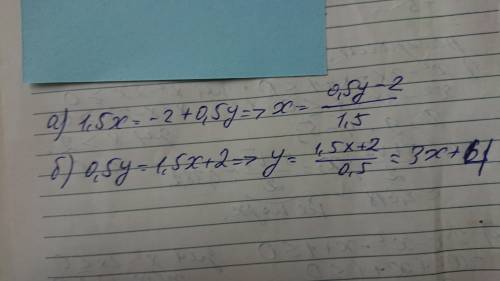 а) 1,5x = -2 + 0,5y => x = (0,5y - 2)/1,5
б) 0,5y = 1,5x + 2 => y = (1,5x + 2)/0,5 = 3x +